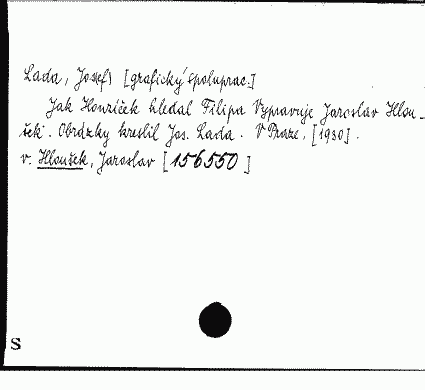 Lada, Josef) [grafický spoluprac.]
Jak Honzíček hledal Filipa Vypravuje Jaroslav Hlou-
šek. Obrázky kreslil Jos. Lada. V Praze, [1930].
v. Hloušek, Jaroslav [156550]
S